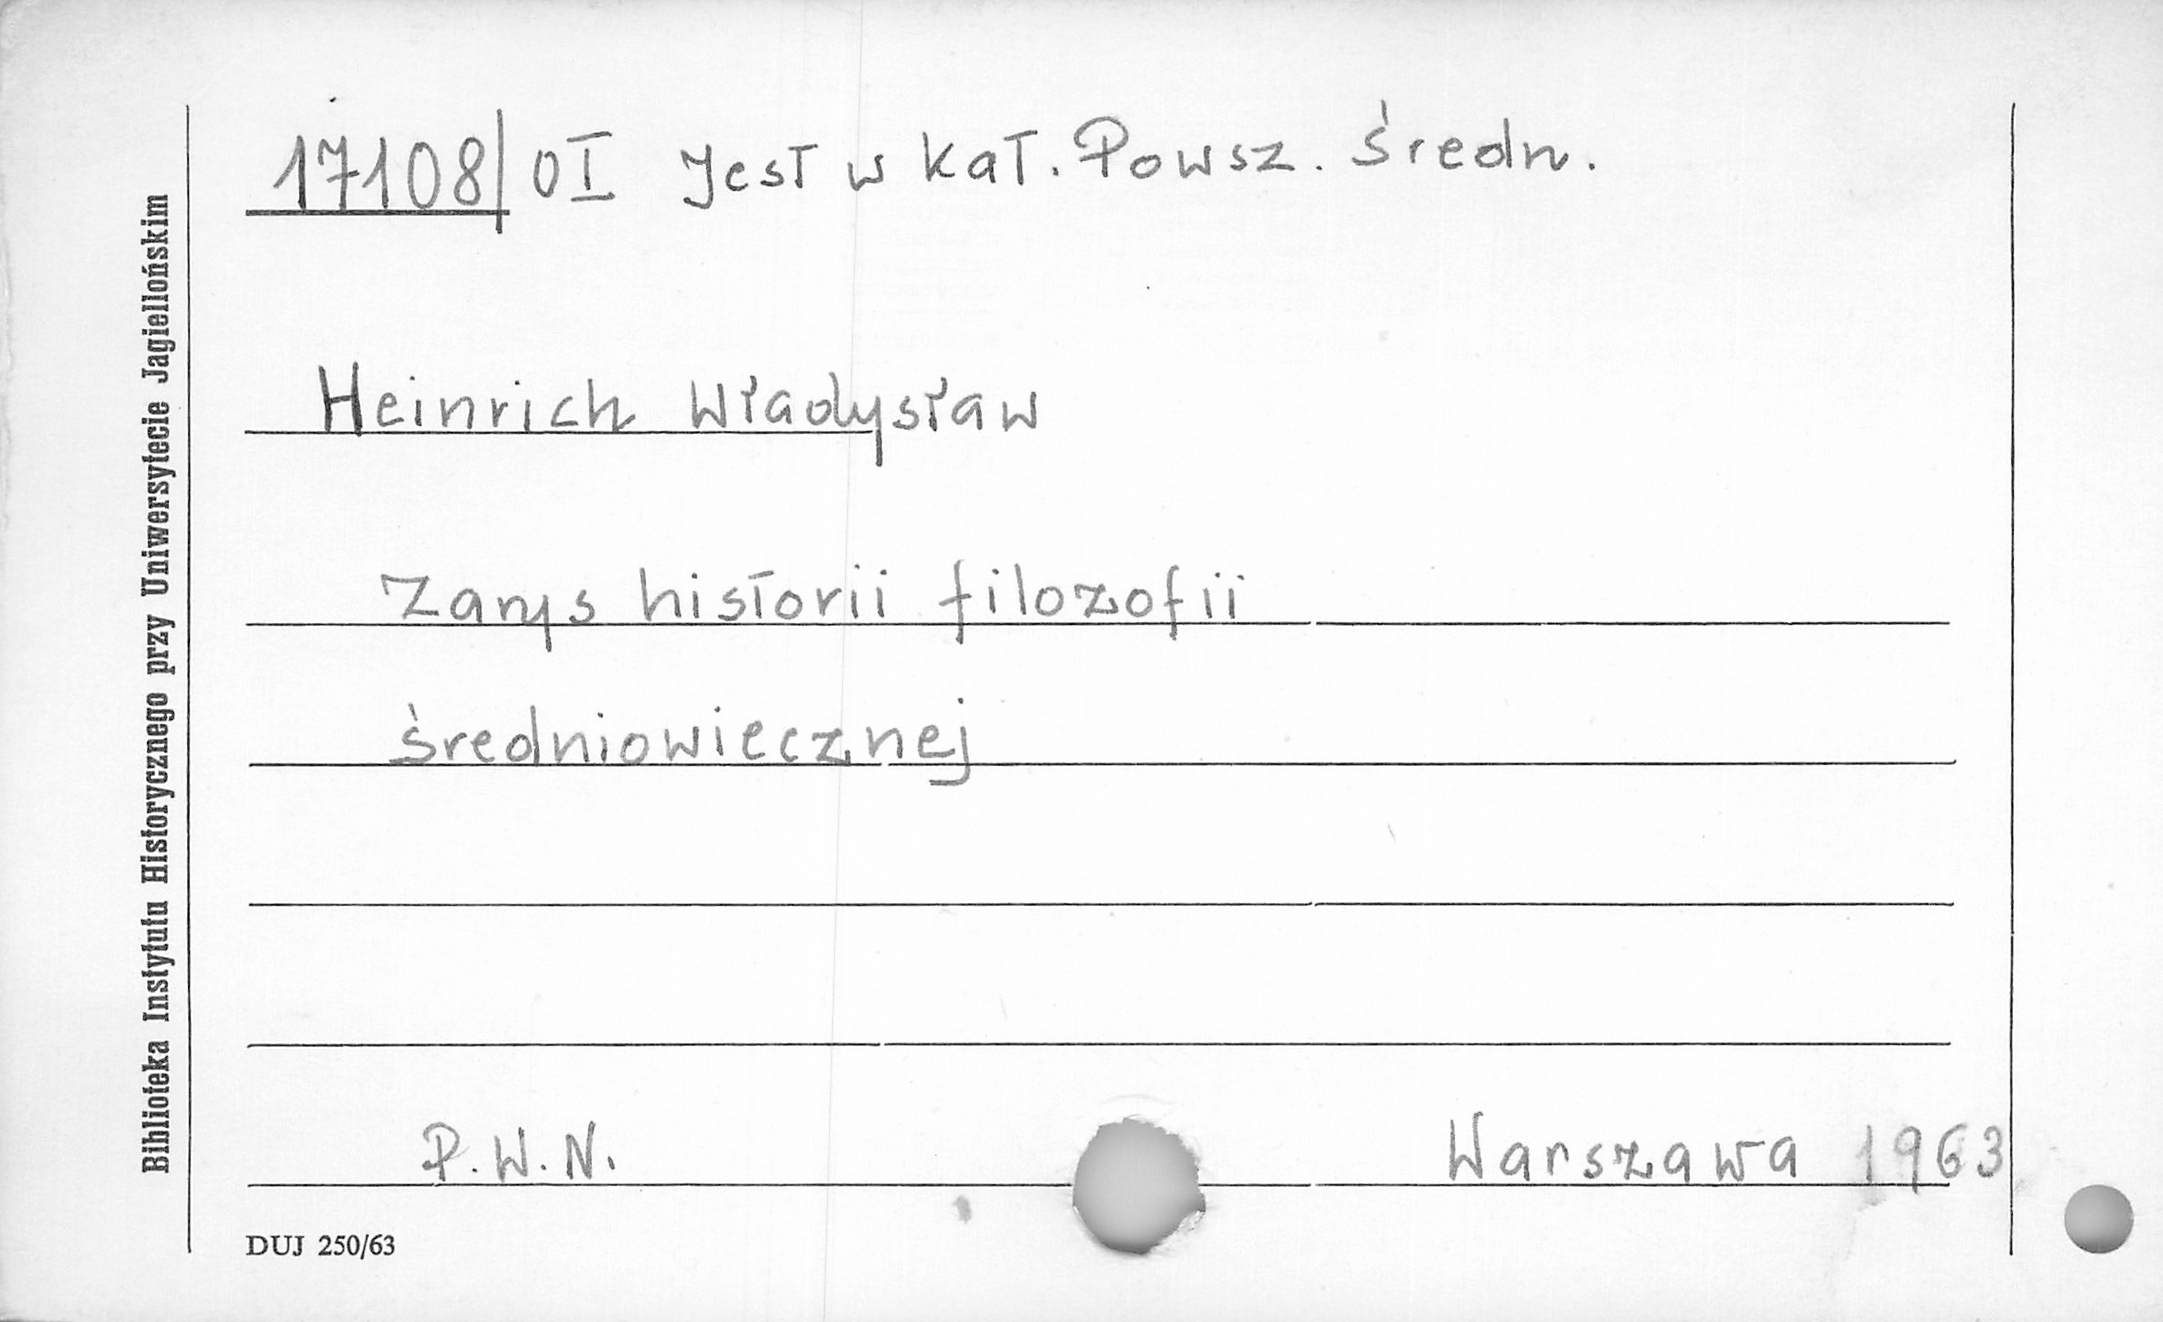 17108/OI Jest w kat. Powsz. średn.
Heinrich Władysław
Zarys historii filozofii
średniowiecznej
P.W.N. Warszawa 1963
DUJ 250/63
Biblioteka Instytutu Historycznego przy Uniwersytecie Jagiellońskim